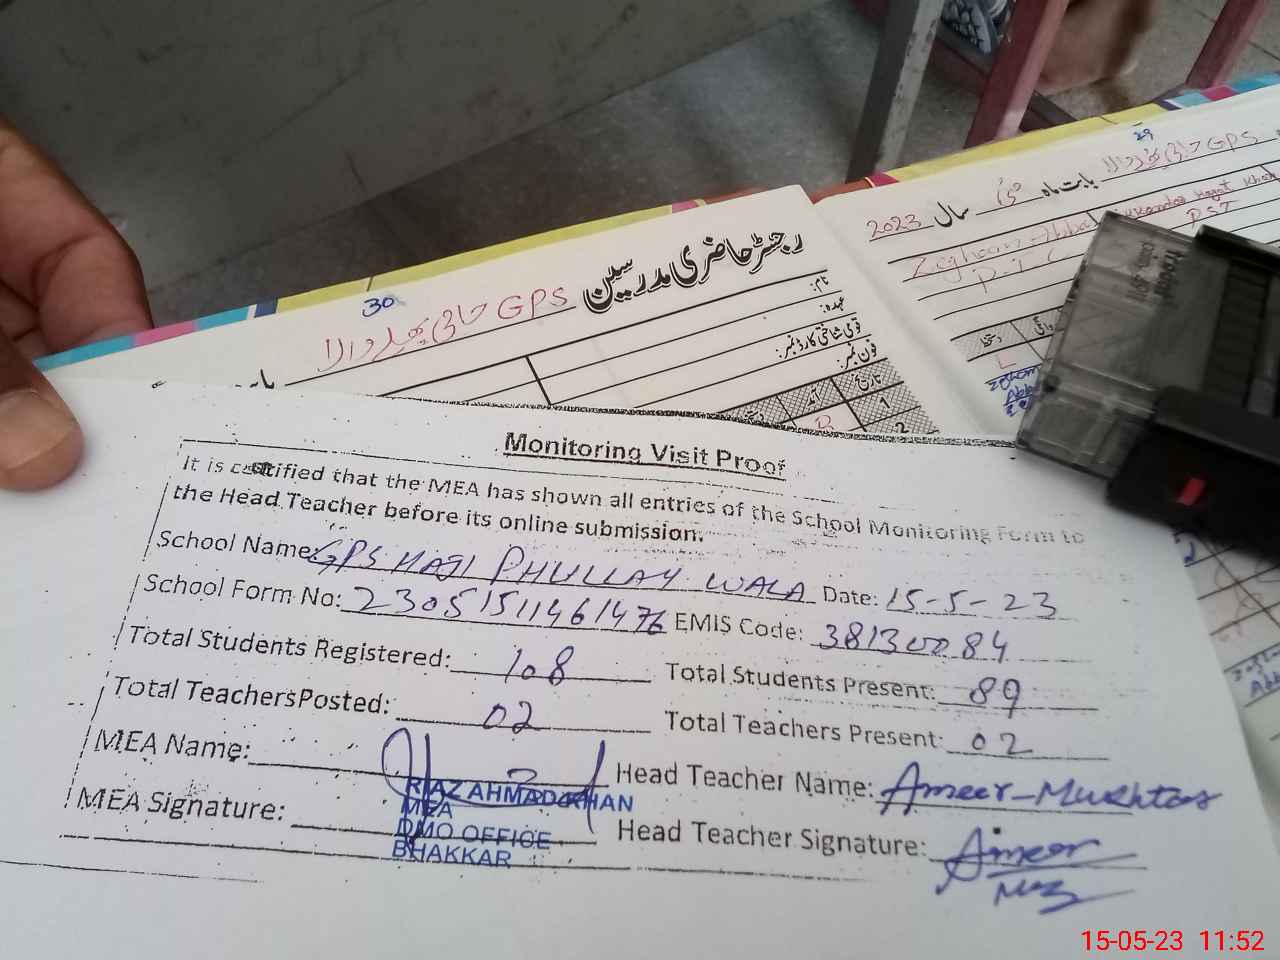 29
GPS حاجی پھلے والا
بابت ماہ مئی سال 2023
PST
30
رجسٹر حاضری مدرسین
GPS حاجی پھلے والا
نام:
عہدہ:
قومی شناختی کارڈ نمبر:
فون نمبر:
تاریخ آمد
1
2
Monitoring Visit Proof
It is certified that the MEA has shown all entries of the School Monitoring Form to
the Head Teacher before its online submission.
School Name: GPS HAJI PHULLAY WALA Date: 15-5-23
School Form No: 23051511461476 EMIS Code: 38130084
Total Students Registered: 108 Total Students Present: 89
Total TeachersPosted: 02 Total Teachers Present: 02
MEA Name: Head Teacher Name: Ameer-Mukhtar
RIAZ AHMAD KHAN
MEA
MEA Signature: Head Teacher Signature: Ameer
DMO OFFICE
BHAKKAR
15-05-23 11:52